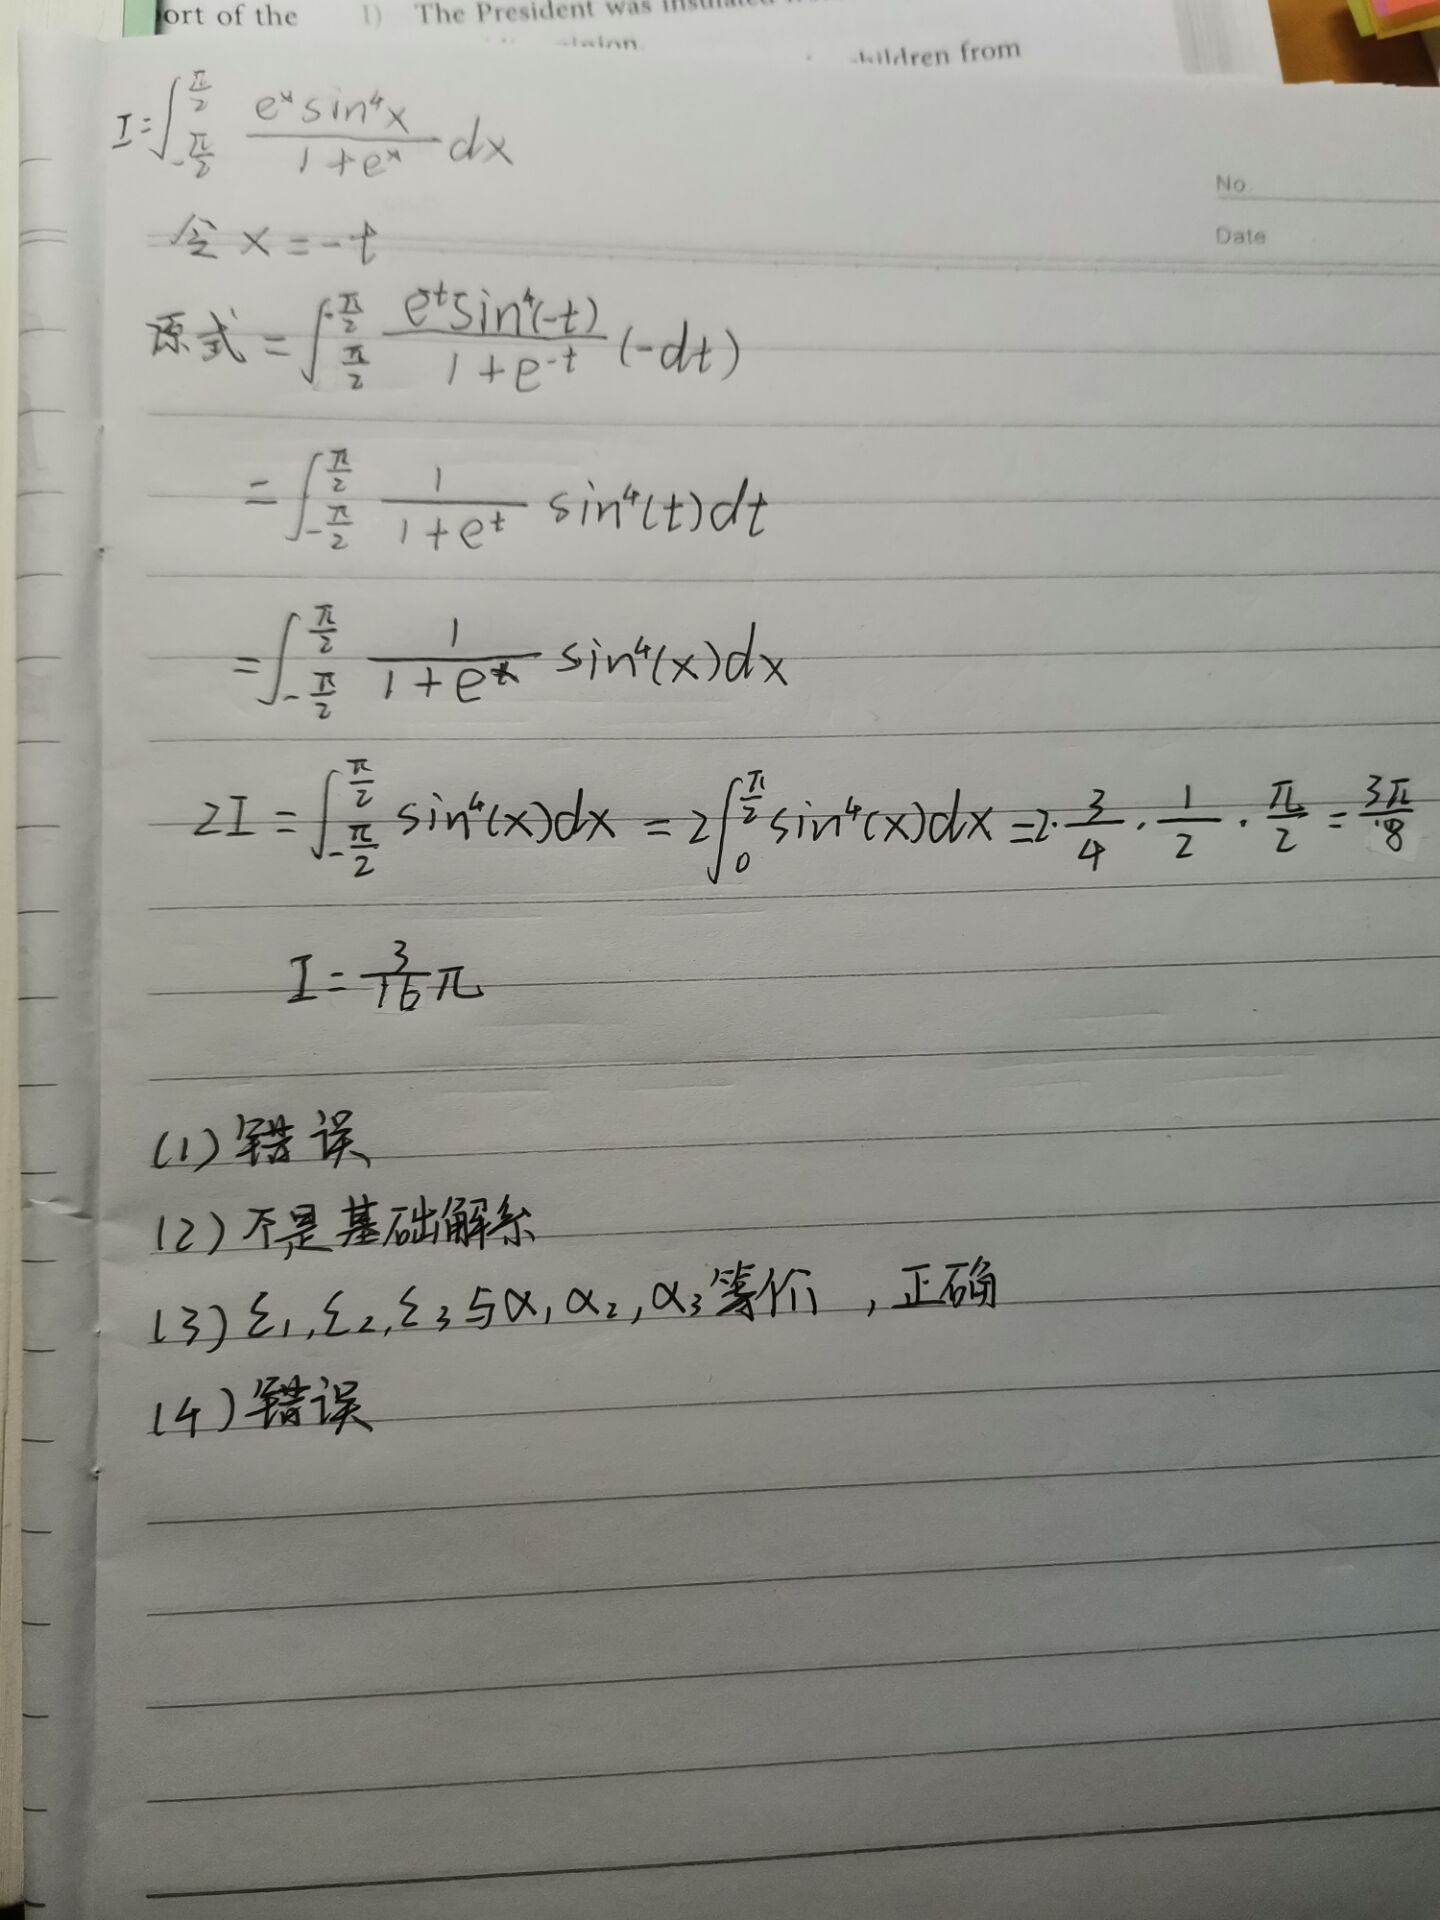 ort of the 1) The President was insulated
children from
No.
Date
I=∫_{-π/2}^{π/2} \frac{e^x sin^4 x}{1+e^x} dx
令 x=-t
原式=∫_{π/2}^{-π/2} \frac{e^{-t} sin^4(-t)}{1+e^{-t}} (-dt)
=∫_{-π/2}^{π/2} \frac{1}{1+e^t} sin^4(t)dt
=∫_{-π/2}^{π/2} \frac{1}{1+e^x} sin^4(x)dx
2I=∫_{-π/2}^{π/2} sin^4(x)dx=2∫_0^{π/2} sin^4(x)dx=2·\frac{3}{4}·\frac{1}{2}·\frac{π}{2}=\frac{3π}{8}
I=\frac{3}{16}π
(1)错误
(2)不是基础解系
(3)ξ₁,ξ₂,ξ₃与α₁,α₂,α₃等价,正确
(4)错误